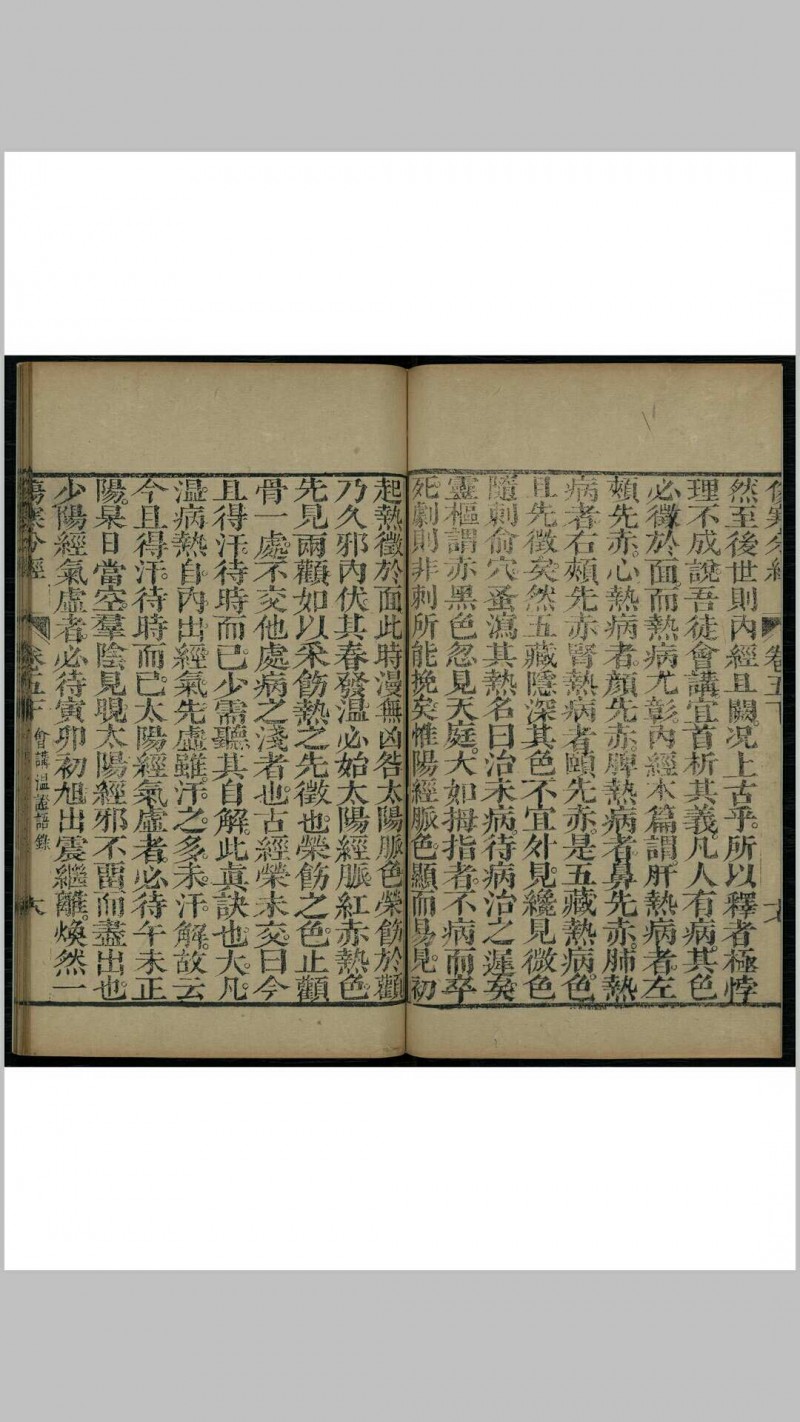 然至後世則內經且闕况上古乎。所以釋者極悖
理不成說吾徒會講宜首析其義凡人有病其色
必徵於面而熱病尤彰內經本篇謂肝熱病者左
頰先赤。心熱病者顏先赤。脾熱病者鼻先赤。肺熱
病者右頰先赤腎熱病者頤先赤。是五藏熱病色
且先徵矣然五藏隱深其色不宜外見纔見微色
隨刺俞穴蚤瀉其熱名曰治未病待病治之遲矣
靈樞謂赤黑色忽見天庭大如拇指者不病而卒
死劇則非刺所能挽矣惟陽經脈色顯而易見初
起熱徵於面此時漫無凶咎太陽脈色榮飾於顴
乃久邪內伏其春發溫必始太陽經脈紅赤熱色
先見兩顴如以采飭熱之先徵也榮飭之色止顴
骨一處不交他處病之淺者也古經榮未交曰今
且得汗待時而已少需聽其自解此眞訣也大凡
溫病熱自內出經氣先虛雖汗之多未汗解故云
今且得汗待時而已太陽經氣虛者必待午未正
陽杲日當空羣陰見晛太陽經邪不畱而盡出也
少陽經氣虛者必待寅卯初旭出震繼離煥然一
傷寒分經 卷五下 會講溫證語錄